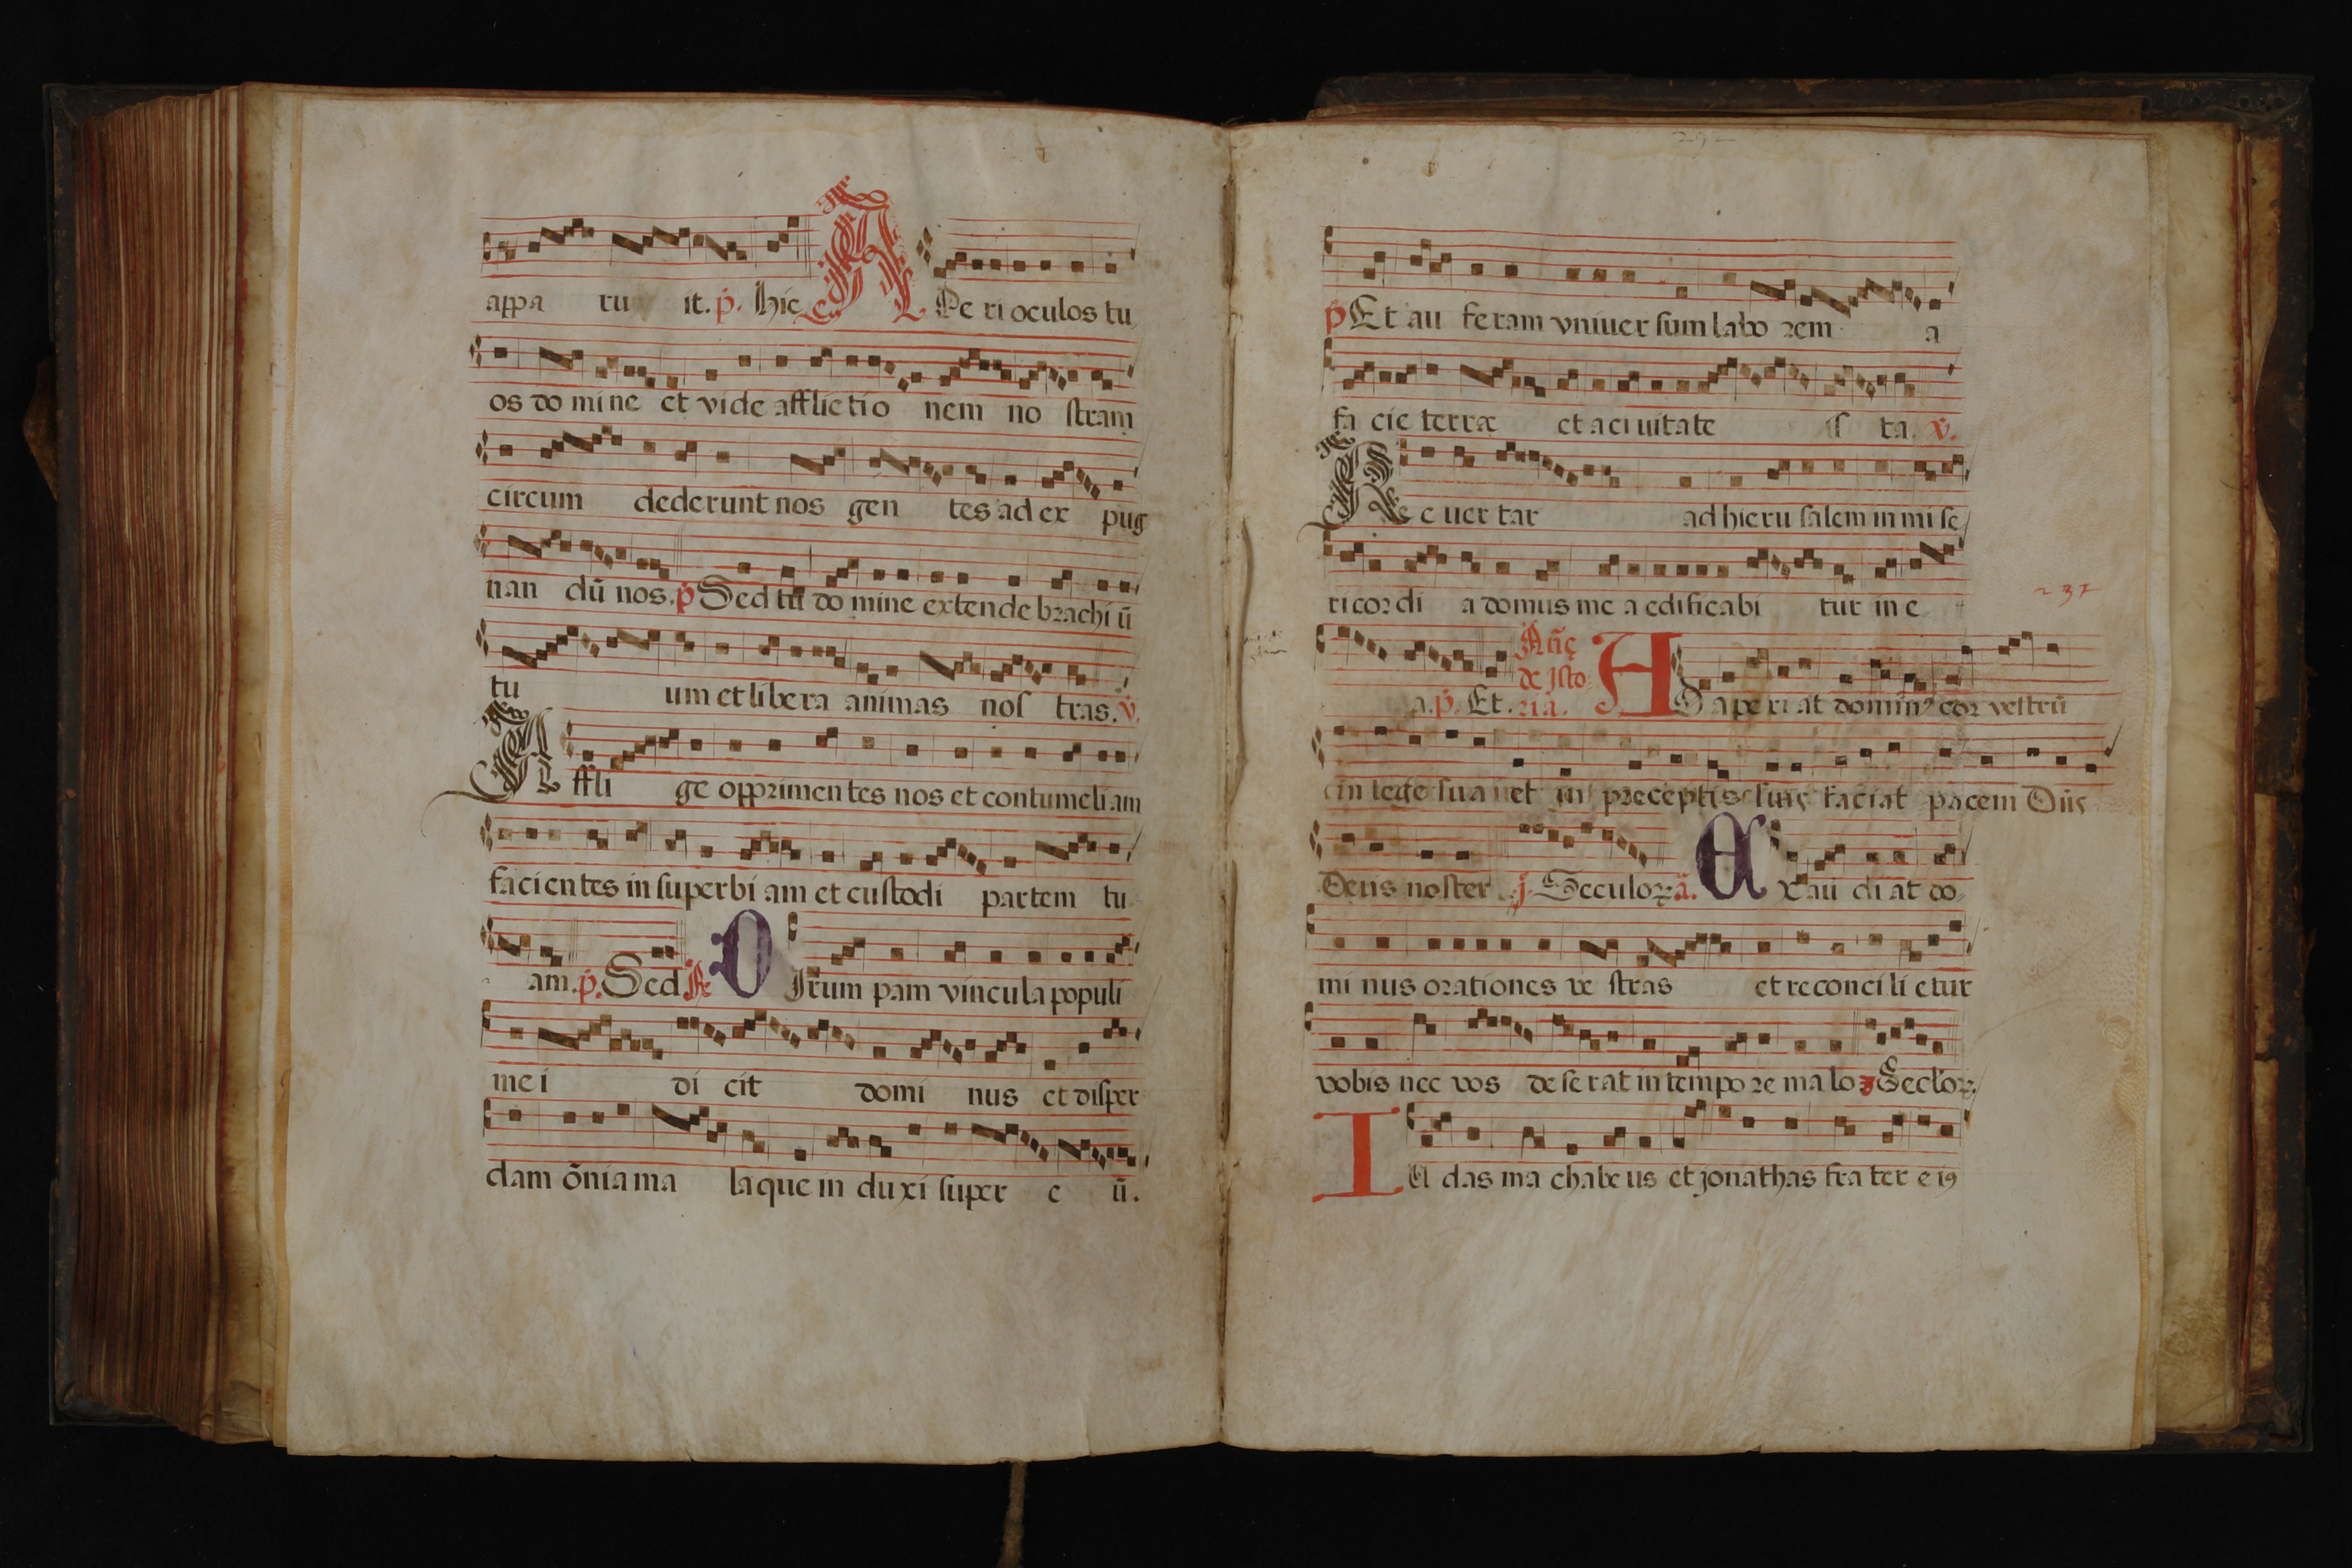 appa ru it. p. hic A Pe ri oculos tu
os do mi ne et vide afflictio nem no stram
circum dederunt nos gen tes ad ex pug
nan dū nos. p Sed tu do mine extende brachi ū
tu um et libera animas nos tras. v.
A ffli ge opprimentes nos et contumeli am
facientes in superbi am et custodi partem tu
am. p. Sed. R D Irum pam vincula populi
me i di cit domi nus et disper
dam ōnia ma la que in duxi super e ū.
p Et au feram vniuer sum labo rem a
fa cie terræ et a ci uitate is ta. v.
R e e uer tar ad hieru salem in mi se
237
ri cor di a domus me a edificabi tur in e
a. p. Et. Añe de Isto ria. A D a pe ri at domin9 cor vestrū
in lege sua et in preceptis suis faciat pacem Dñs
Deus noster. j. Seculoꝝ. a. E X au di at do
mi nus orationes ve stras et reconci li etur
vobis nec vos de se rat in tempo re ma lo. Seclōꝝ.
I U das ma chabe us et jonathas fra ter e i9